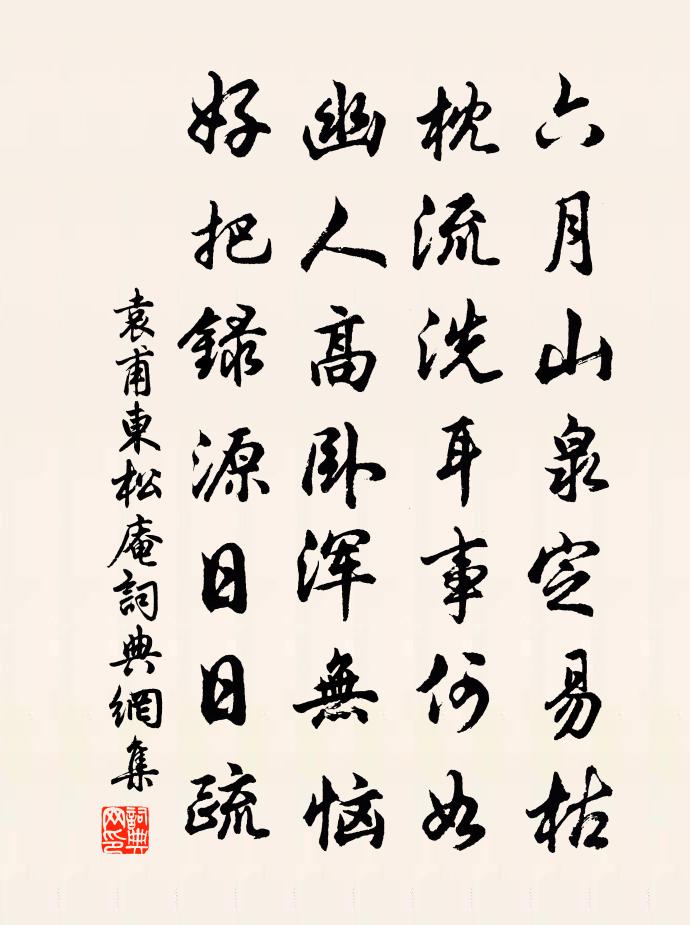 六月山泉定易枯
枕流洗耳事何如
幽人高卧浑無恼
好把録源日日疏
袁甫東松庵詞典網集
詞典网印